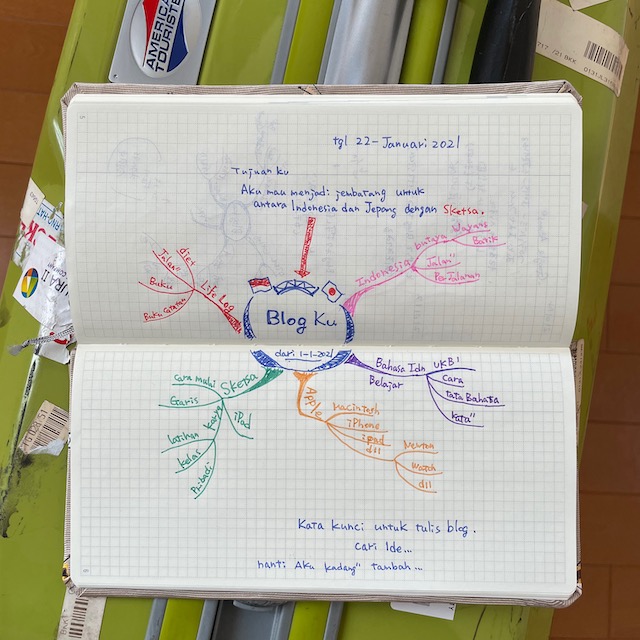 AMERICAN
TOURISTER
tgl 22-Januari 2021
Tujuan ku
Aku mau menjadi jembatang untuk
antara Indonesia dan Jepang dengan Sketsa.
Blog Ku
dari 1-1-2021
Life Log
diet
Jalan²
Buku
Buku catatan
Indonesia
budaya
Wayang
Batik
Jalan"
Perjalanan
Bahasa Idn
Belajar
UKBI
Cara
Tata Bahasa
Kata"
Apple
macintosh
iPhone
ipad
dll
Newton
Watch
dll
Sketsa
Cara mulai
Garis
Karya
iPad
latihan
kelas
Pribadi
Kata kunci untuk tulis blog.
cari Ide...
nanti Aku kadang" tambah...